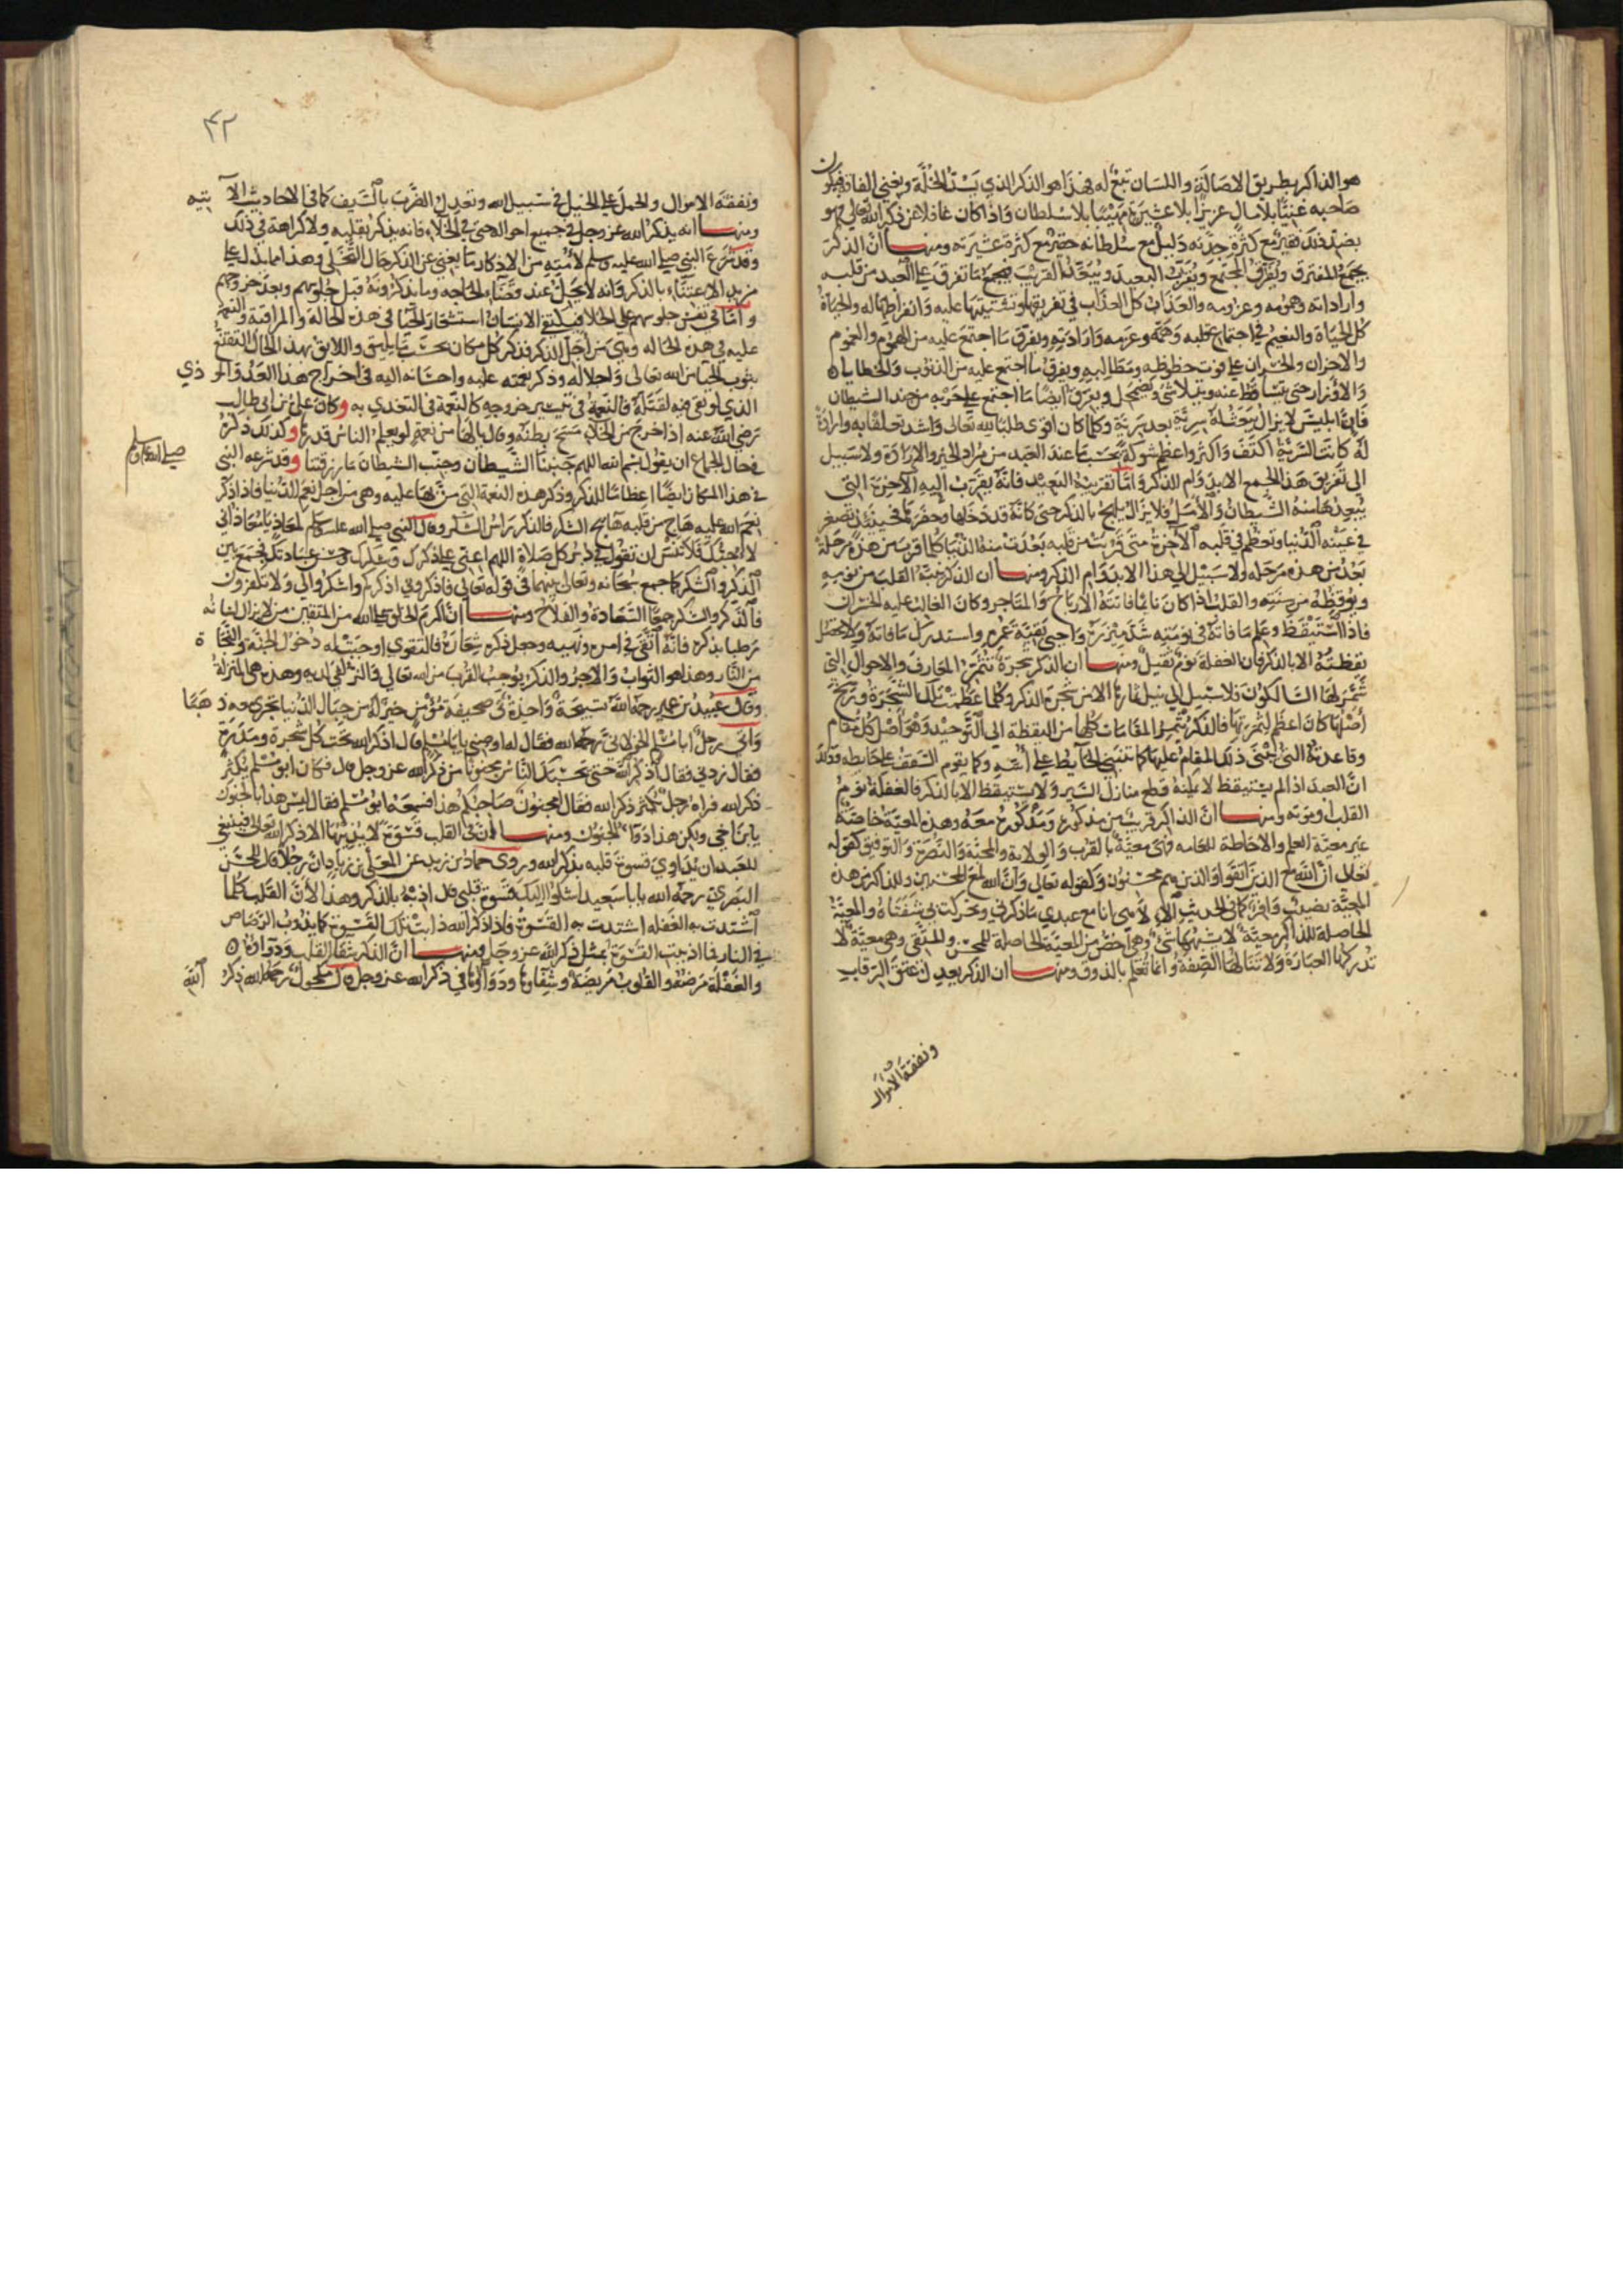 هو الذاكر بطريق الاصالة واللسان تبع له فهذا هو الذكر الذي يسد الخلة ويغني الفاقة فيكون
صاحبه غنيا بلا مال عزيزا بلا عشيرة مهيبا بلا سلطان واذا كان غافلا عن ذكر الله تعالى فهو
بضد ذلك فقير مع كثرة جدته ذليل مع سلطانه حقير مع كثرة عشيرته ومنها ان الذكر
يجمع المتفرق ويفرق المجتمع ويقرب البعيد ويبعد القريب فيجمع ما تفرق على العبد من قلبه
وارادته وهمومه وعزومه والعذاب كل العذاب في تفرقتها وتشتيتها عليه وانفراطها له والحياة
كل الحياة والنعيم في اجتماع قلبه وهمه وعزمه وارادته ويفرق ما اجتمع عليه من الهموم والغموم
والاحزان والخسران على فوت حظوظه ومطالبه ويفرق ما اجتمع عليه من الذنوب والخطايا
والاوزار حتى تتساقط عنه وتتلاشى وتضمحل ويفرق ايضا ما اجتمع على حربه من جند الشيطان
فان ابليس لا يزال يبعث له سرية بعد سرية وكلما كان اقوى طلبا لله تعالى واشد تعلقا به وارادة
له كانت السرية اكثف واكثر واعظم شوكة بحسب ما عند العبد من مراد الخير والارادة ولا سبيل
الى تفريق هذا الجمع الا بدوام الذكر واما تقريبه البعيد فانه يقرب اليه الآخرة التي
يبعدها منه الشيطان والأمل فلا يزال يلهج بالذكر حتى كانه قد دخلها وحضرها فحينئذ تصغر
في عينه الدنيا وتعظم في قلبه الآخرة متى قربت من قلبه بعدت منه الدنيا كلما قرب من هذه مرحلة
بعد من هذه مرحله ولا سبيل الى هذا الا بدوام الذكر ومنها ان الذكر ينبه القلب من نومه
ويوقظه من سنته والقلب اذا كان نائما فاتته الارباح والمتاجر وكان الغالب عليه الخسران
فاذا استيقظ وعلم ما فاته في نومته شد مئزره واحيى بقية عمره واستدرك ما فاته ولا تحصل
يقظته الا بالذكر فان الغفلة نوم ثقيل ومنها ان الذكر شجرة تثمر المعارف والاحوال التي
شمر لها السالكون فلا سبيل الى نيل ثمارها الا من شجرة الذكر وكلما عظمت تلك الشجرة ورسخ
أصلها كان اعظم لثمرتها فالذكر يثمر المقامات كلها من اليقظة الى التوحيد وهو أصل كل مقام
وقاعدته التي ينبني ذلك المقام عليها كما ينبني الحايط على أسه وكما يقوم السقف على حايطه وذلك
ان العبد اذا لم يستيقظ لا يمكنه قطع منازل السير ولا يستيقظ الا بالذكر فالغفلة نوم
القلب او موته ومنها ان الذاكر قريب من مذكوره ومذكوره معه وهذه المعية خاصة
غير معية العلم والاحاطة العامه فهي معية بالقرب والولاية والمحبة والنصرة والتوفيق كقوله
تعالى ان الله مع الذين اتقوا والذين هم محسنون وكقوله تعالى وان الله لمع المحسنين وللذاكر من هذه
المعية نصيب وافر كما في الحديث الالهي انا مع عبدي ما ذكرني وتحركت بي شفتاه والمعية
الحاصلة للذاكر معية لا يشبهها شيء وهي اخص من المعية الحاصلة للمحسن والمتقي وهي معية لا
تدركها العبارة ولا تنالها الصفة وانما تعلم بالذوق ومنها ان الذكر يعدل عتق الرقاب
ونفقة الاموال
٤٢
ونفقة الاموال والحمل على الخيل في سبيل الله وتعدل الضرب بالسيف كما في الاحاديث الآتيه
ومنها انه يذكر الله عز وجل في جميع احواله حتى في الخلاء فانه يذكر بقلبه ولا كراهة في ذلك
وقد شرع النبي صلى الله عليه وسلم لأمته من الاذكار ما يغني عن الذكر حال التخلي وهذا مما يدل على
مزيد الاعتناء بالذكر فانه لا يخل عند قضاء الحاجه وما يذكرونه قبل جلوسهم وبعد خروجهم
واما في نفس جلوسهم على الخلا فيكفي الانسان استشعار الحيا في هذه الحالة والمراقبة والنعم
عليه في هذه الحاله وهي من اجل الذكر فذكر كل مكان بحسب ما يليق واللايق بهذا الحال التقنع
بثوب الحيا من الله تعالى واجلاله وذكر نعمته عليه واحسانه اليه في اخراج هذا العدو المؤذي
الذي لو بقي فيه لقتله فالنعمة في تيسير خروجه كالنعمة في التغذي به وكان علي بن ابي طالب
رضي الله عنه اذا خرج من الخلاء مسح بطنه وقال يا لها من نعمة لو يعلم الناس قدرها وكذلك ذكره
في حال الجماع ان يقول بسم الله اللهم جنبنا الشيطان وجنب الشيطان ما رزقتنا وقد شرعه النبي
صلى الله عليه وسلم
في هذا المكان ايضا اعظاما للذكر وذكر هذه النعمة التي من بها عليه وهي من اجل نعم الدنيا فاذا ذكر
نعم الله عليه هاج من قلبه هايج الشكر فالذكر راس الشكر وقال النبي صلى الله عليه وسلم لمعاذ يا معاذ اني
لأحبك فلا تنس ان تقول في دبر كل صلاة اللهم اعني على ذكرك وشكرك وحسن عبادتك فجمع بين
الذكر والشكر كما جمع سبحانه وتعالى بينهما في قوله تعالى فاذكروني اذكركم واشكروا لي ولا تكفرون
فالذكر والشكر جماع السعادة والفلاح ومنها ان اكرم الخلق على الله من المتقين من لا يزال لسانه
رطبا بذكره فانه اتقى في امره ونهيه وجعل ذكره شعاره فالتقوى اوجبت له دخول الجنة والنجاة
من النار وهذا هو الثواب والاجر والذكر يوجب القرب من الله تعالى والزلفى لديه وهذه هي المنزلة
وقال عبيد بن عمير رحمه الله تسبيحة واحدة في صحيفة مؤمن خير له من جبال الدنيا تجري معه ذهبا
وأتى رجل ابا مسلم الخولاني رحمه الله فقال له اوصني يا ابا مسلم قال اذكر الله تحت كل شجرة ومدرة
فقال زدني فقال اذكر الله حتى يحسبك الناس مجنونا من ذكر الله عز وجل قال فكان ابو مسلم يكثر
ذكر الله فراه رجل يكثر ذكر الله فقال امجنون صاحبكم هذا فسمعه ابو مسلم فقال ليس هذا بالجنون
يا ابن اخي ولكن هذا دواء الجنون ومنها أن في القلب قسوة لا يذيبها الا ذكر الله تعالى فينبغي
للعبد ان يداوي قسوة قلبه بذكر الله وروى حماد بن زيد عن المعلى بن زياد ان رجلا قال للحسن
البصري رحمه الله يا ابا سعيد اشكو اليك قسوة قلبي قال اذبه بالذكر وهذا لأن القلب كلما
اشتدت به الغفله اشتدت به القسوة فاذا ذكر الله ذابت تلك القسوة كما يذوب الرصاص
في النار فما اذيبت القسوة بمثل ذكر الله عز وجل ومنها ان الذكر شفاء القلب ودواؤه
والغفلة مرضه والقلوب مريضة وشفاؤها ودواؤها في ذكر الله عز وجل قال مكحول رحمه الله ذكر الله